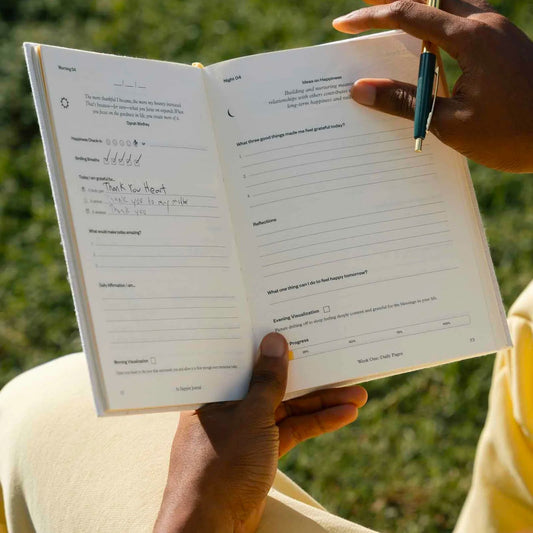 Morning 04
The more thankful I became, the more my bounty increased.
That's because—for sure—what you focus on expands. When
you focus on the goodness in life, you create more of it.
Oprah Winfrey
Happiness Check-in
Smiling Breaths
Today I am grateful for...
Thank You Heart
Thank you to my
Thank you
What would make today amazing?
1.
2.
3.
Daily Affirmation: I am...
Morning Visualization
Night 04
Ideas on Happiness
Building and nurturing
relationships with others
long-term happiness and
What three good things made me feel grateful today?
1.
2.
3.
Reflections
What one thing can I do to feel happy tomorrow?
Evening Visualization
Picture drifting off to sleep feeling deeply content and grateful for the blessings in your life.
Progress
50% 75% 100%
Week One: Daily Pages